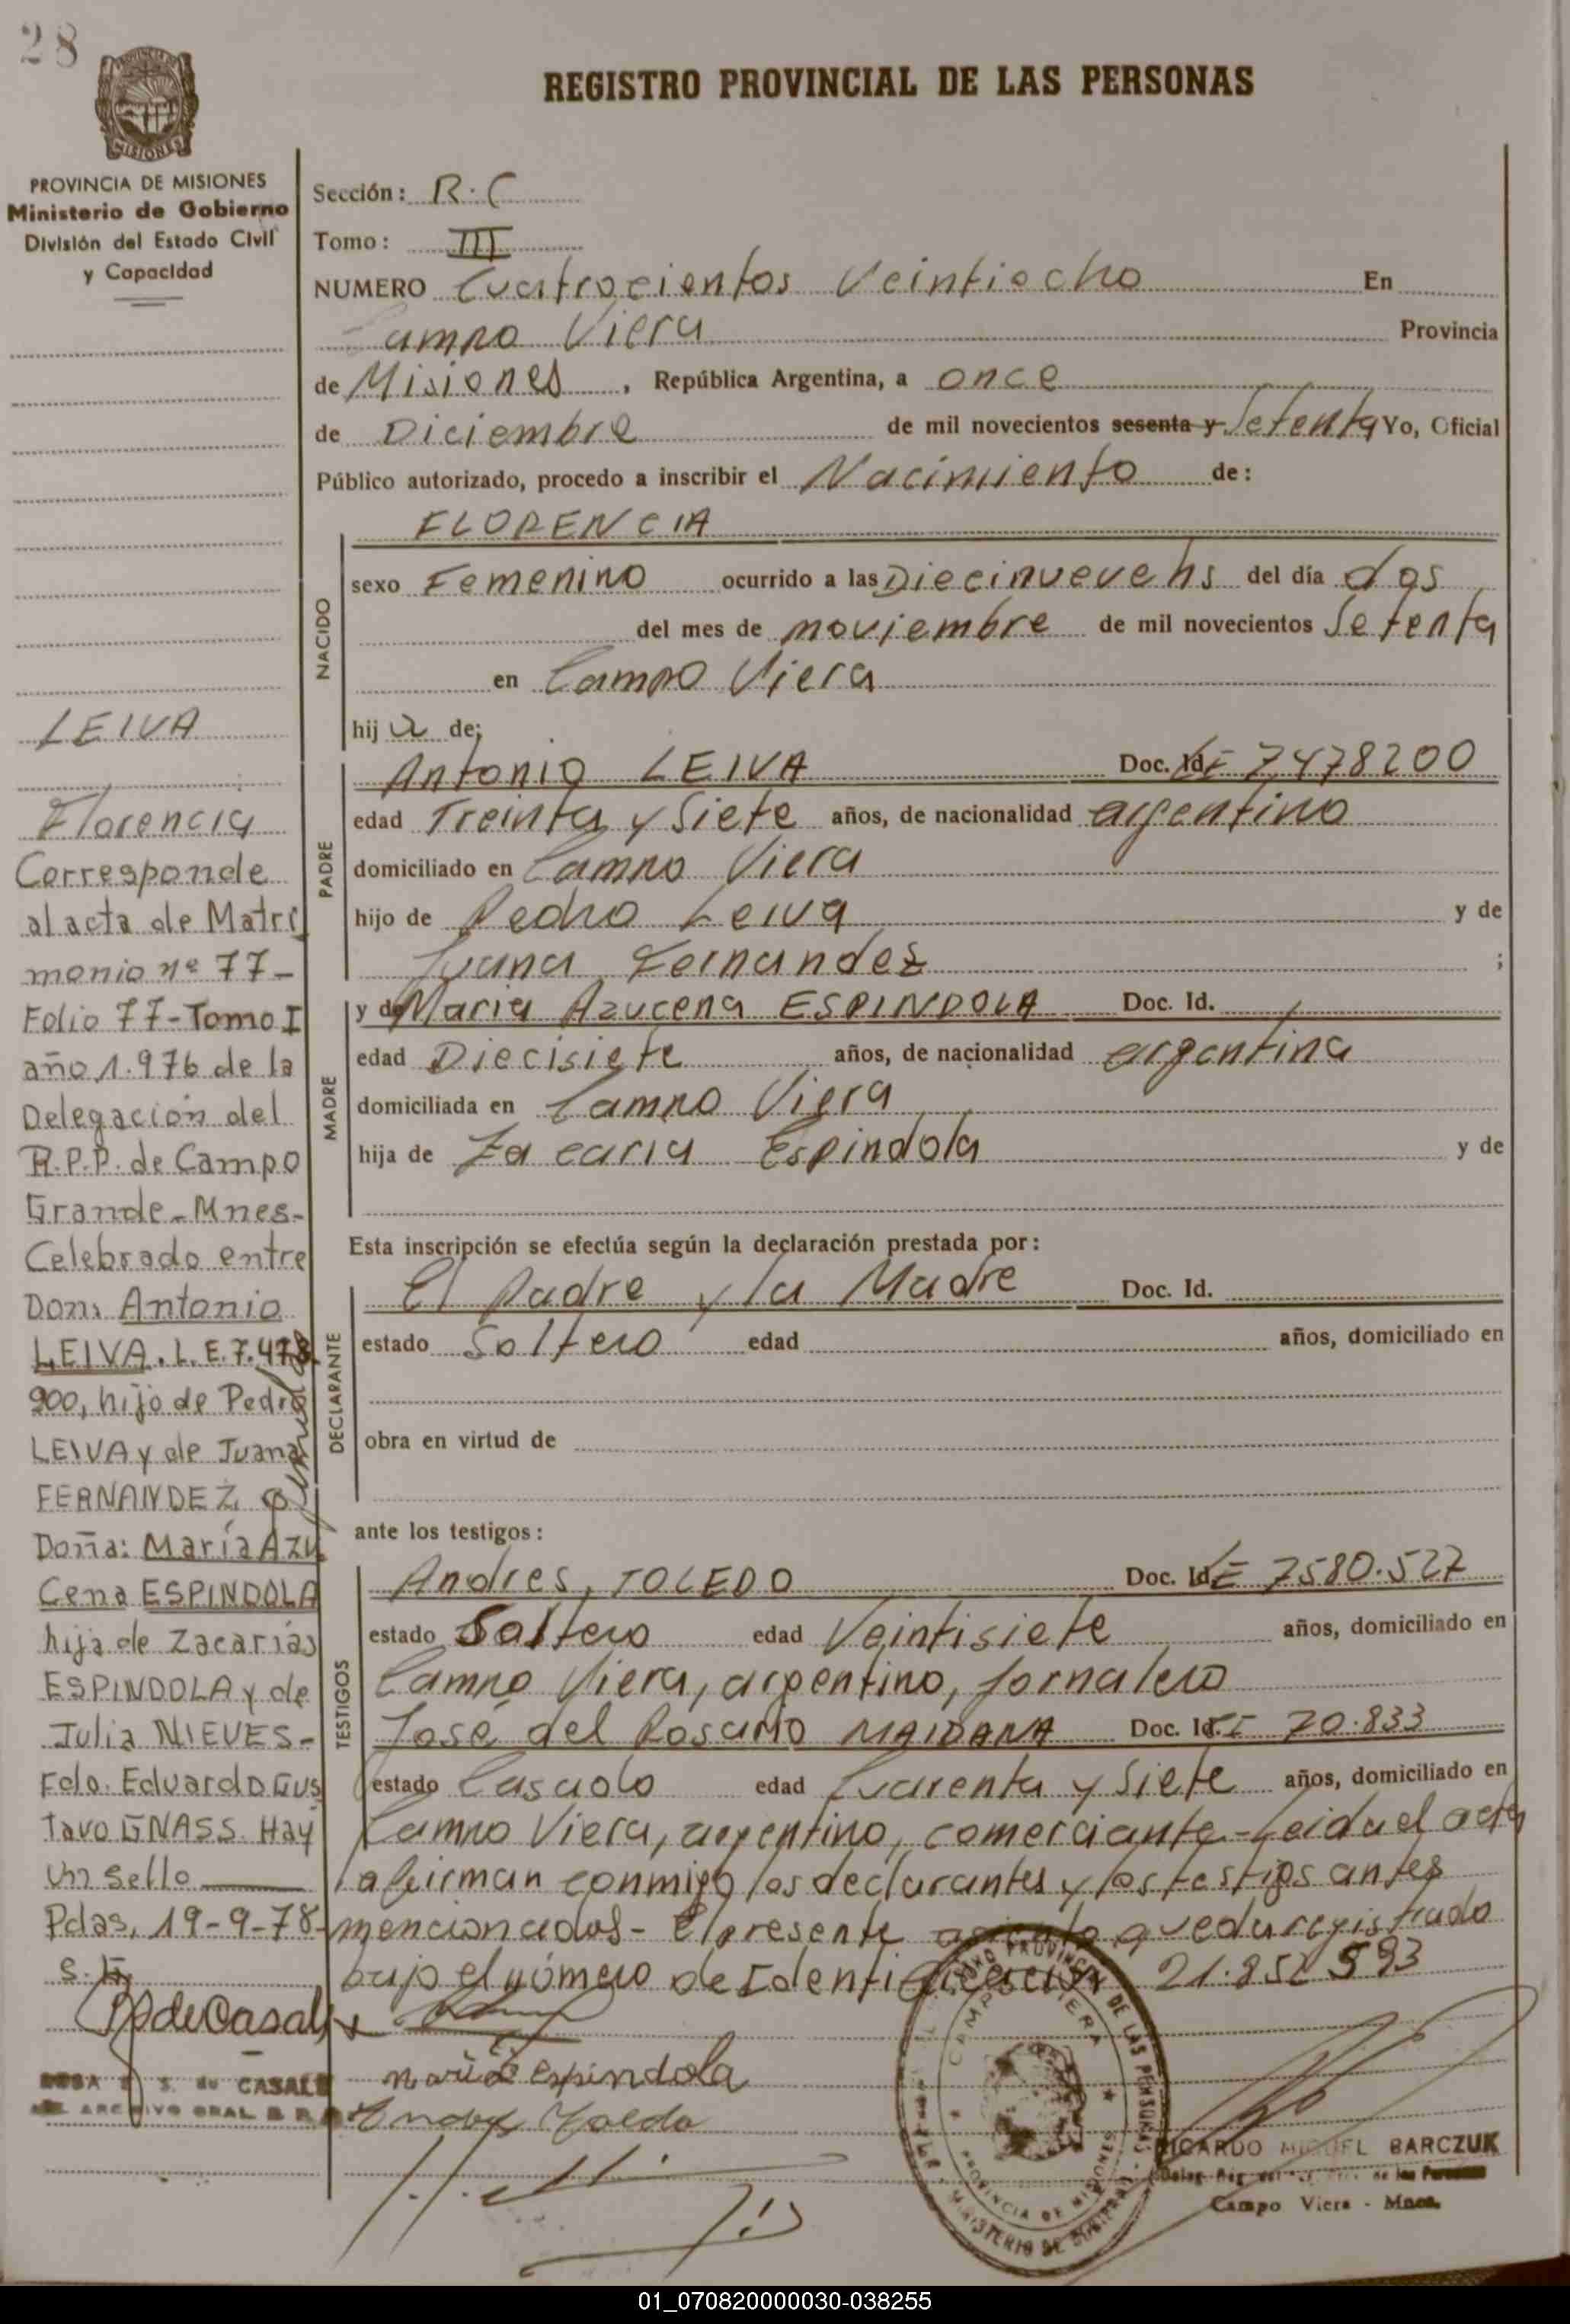 28
REGISTRO PROVINCIAL DE LAS PERSONAS
PROVINCIA DE MISIONES
Ministerio de Gobierno
División del Estado Civil
y Capacidad
LEIVA
Florencia
Corresponde
al acta de Matri
monio nº 77-
Folio 77-Tomo I
año 1.976 de la
Delegación del
R.P.P. de Campo
Grande-Mnes-
Celebrado entre
Don: Antonio
LEIVA. L.E.7.478
900, hijo de Pedro
LEIVA y de Juana
FERNANDEZ
Doña: María Azu
Cena ESPINDOLA
hija de Zacarías
ESPINDOLA y de
Julia NIEVES-
Fdo. Eduardo Gus
tavo GNASS. Hay
un sello
Pdas, 19-9-78-
Sección: R.C
Tomo: III
NUMERO Cuatrocientos Veintiocho En
Campo Viera Provincia
de Misiones, República Argentina, a once
de Diciembre de mil novecientos sesenta y Setenta Yo, Oficial
Público autorizado, procedo a inscribir el Nacimiento de:
NACIDO
FLORENCIA
sexo Femenino ocurrido a las Diecinueve hs del día dos
del mes de noviembre de mil novecientos Setenta
en Campo Viera
hija de:
PADRE
Antonio LEIVA Doc. Id. LE 7.478200
edad Treinta y Siete años, de nacionalidad argentino
domiciliado en Campo Viera
hijo de Pedro Leiva y de
Juana Fernandez ;
MADRE
y de Maria Azucena ESPINDOLA Doc. Id.
edad Diecisiete años, de nacionalidad argentina
domiciliada en Campo Viera
hija de Zacaria Espindola y de
Esta inscripción se efectúa según la declaración prestada por:
DECLARANTE
El Padre y la Madre Doc. Id.
estado Soltero edad años, domiciliado en
obra en virtud de
ante los testigos:
TESTIGOS
Andres, TOLEDO Doc. Id. LE 7580.527
estado Soltero edad Veintisiete años, domiciliado en
Campo Viera, argentino, Jornalero
José del Rosario MAIDANA Doc. Id. 70.833
estado Casado edad Cuarenta y Siete años, domiciliado en
Campo Viera, argentino, comerciante-Leida el acta
la firman conmigo los declarantes y los testigos antes
mencionados- El presente queda registrado
bajo el número de Identificación 21.852 593
maria espindola
CAMPO VIERA
PROVINCIA DE MISIONES
RICARDO MIGUEL BARCZUK
Campo Viera - Mnes.
01_070820000030-038255